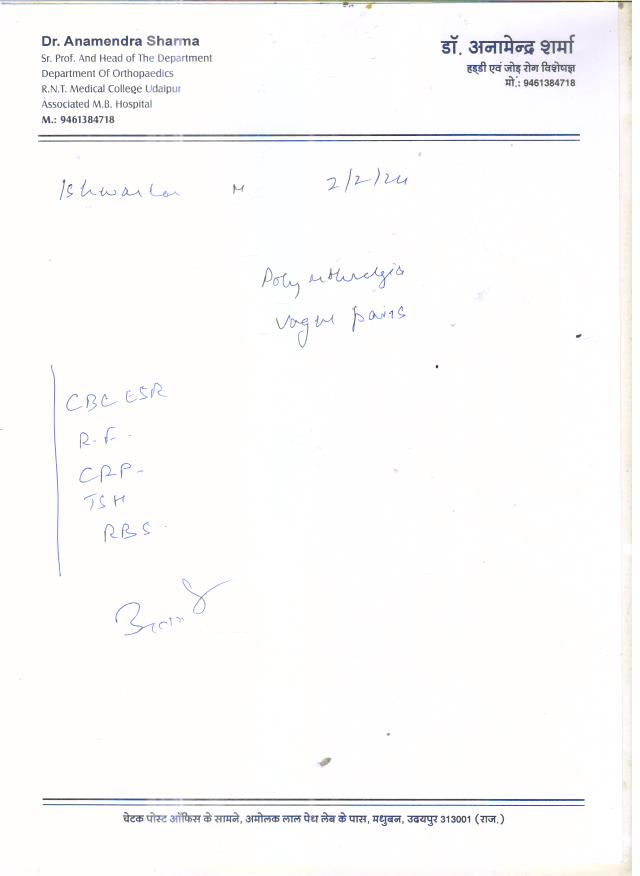 Dr. Anamendra Sharma
Sr. Prof. And Head of The Department
Department Of Orthopaedics
R.N.T. Medical College Udaipur
Associated M.B. Hospital
M.: 9461384718
डॉ. अनामेन्द्र शर्मा
हड्डी एवं जोड़ रोग विशेषज्ञ
मो.: 9461384718
M 2/2/24
Poly arthralgia
Vague pains
CBC ESR
R.F.
CRP
TSH
RBS
चेटक पोस्ट ऑफिस के सामने, अमोलक लाल पेथ लेब के पास, मधुबन, उदयपुर 313001 (राज.)